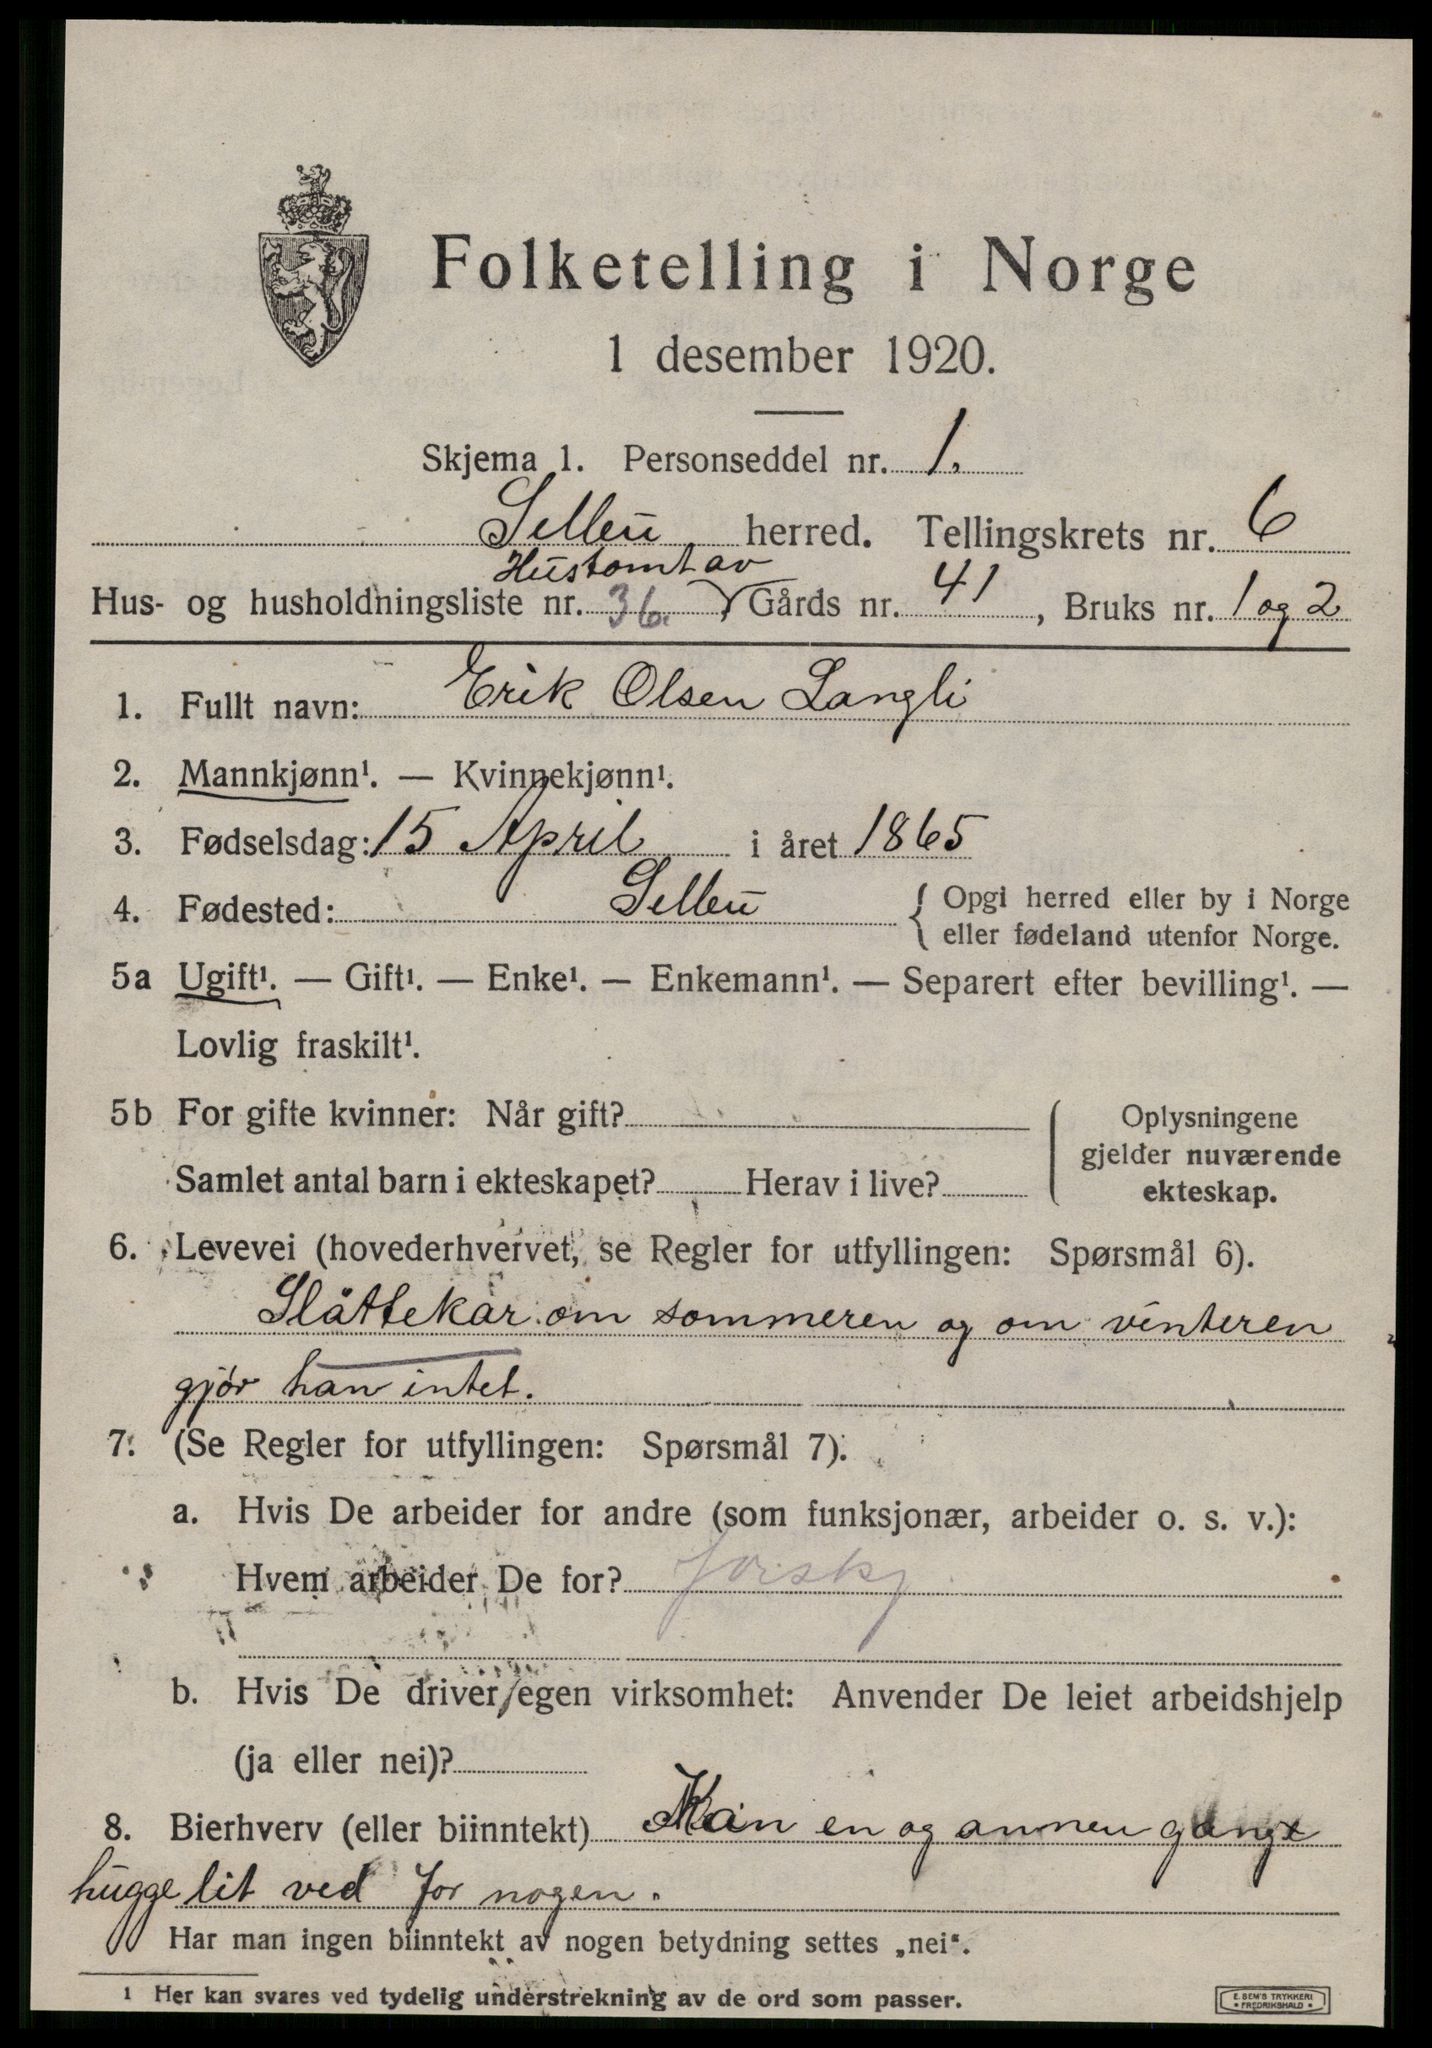 Folketelling i Norge
1 desember 1920.
Skjema 1. Personseddel nr. 1.
Selbu herred. Tellingskrets nr. 6
Hustomt av
Hus- og husholdningsliste nr. 36. Gårds nr. 41, Bruks nr. 1 og 2
1. Fullt navn: Erik Olsen Langli
2. Mannkjønn¹. — Kvinnekjønn¹.
3. Fødselsdag: 15 April i året 1865
4. Fødested: Selbu { Opgi herred eller by i Norge
eller fødeland utenfor Norge.
5a Ugift¹. — Gift¹. — Enke¹. — Enkemann¹. — Separert efter bevilling¹. —
Lovlig fraskilt¹.
5b For gifte kvinner: Når gift?
Samlet antal barn i ekteskapet? Herav i live?
Oplysningene
gjelder nuværende
ekteskap.
6. Levevei (hovederhvervet, se Regler for utfyllingen: Spørsmål 6).
Slåttekar om sommeren og om vinteren
gjør han intet.
7. (Se Regler for utfyllingen: Spørsmål 7).
a. Hvis De arbeider for andre (som funksjonær, arbeider o. s. v.):
Hvem arbeider De for? forskj
b. Hvis De driver egen virksomhet: Anvender De leiet arbeidshjelp
(ja eller nei)?
8. Bierhverv (eller biinntekt) Kan en og annen gang
hugge lit ved for nogen.
Har man ingen biinntekt av nogen betydning settes „nei“.
¹ Her kan svares ved tydelig understrekning av de ord som passer.
E. SEM'S TRYKKERI
• FREDRIKSHALD •